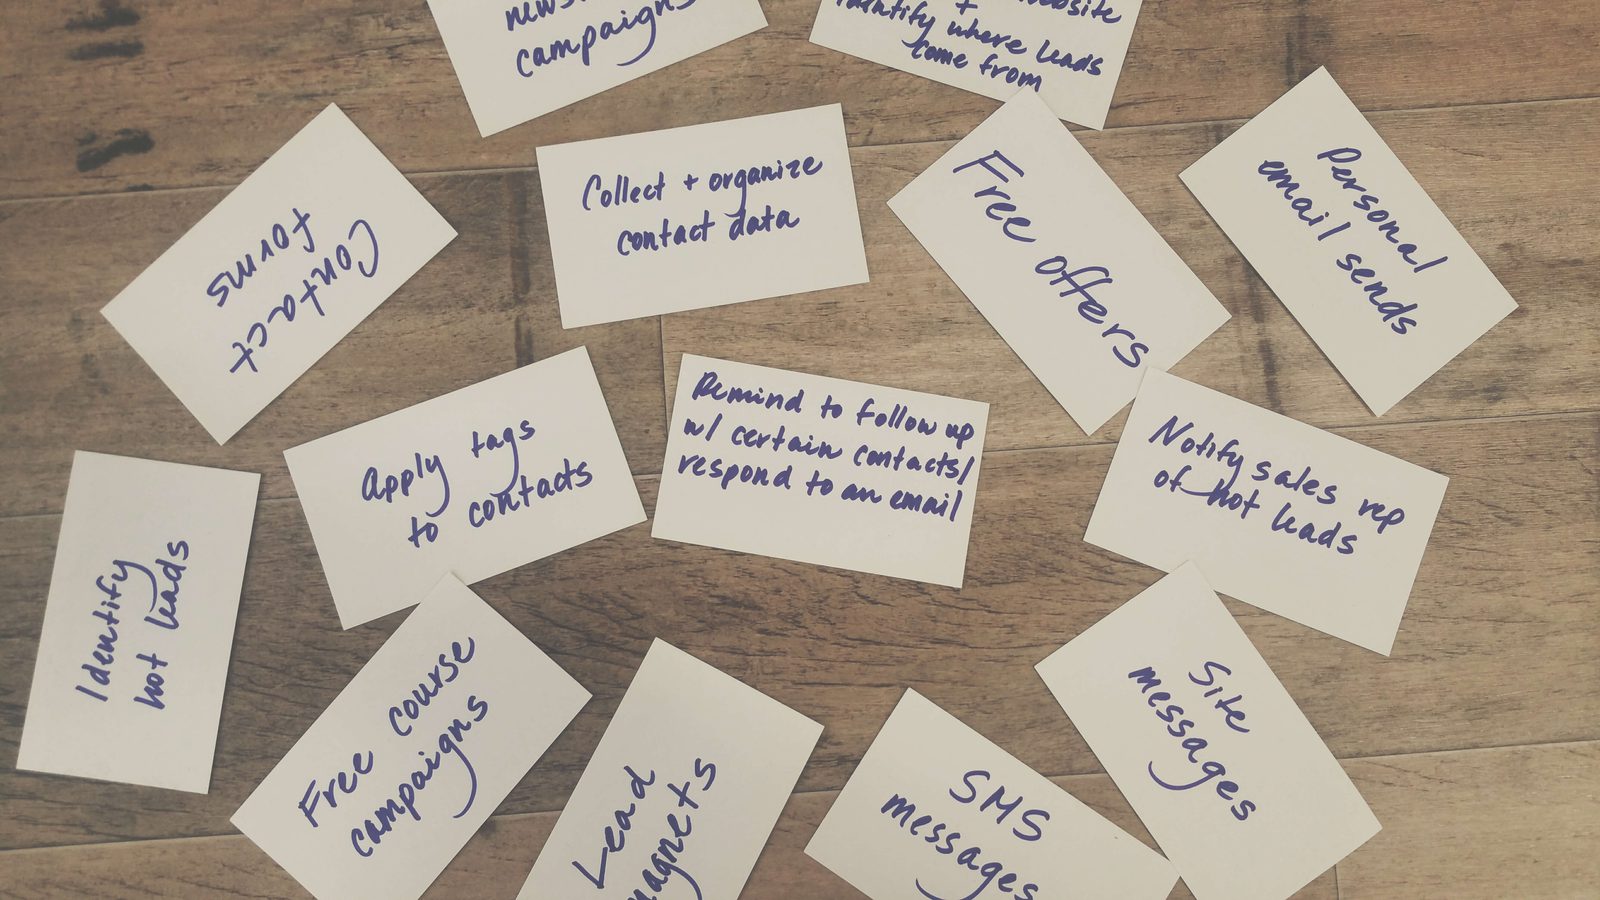 campaigns
identify where leads
come from
Contact
forms
Collect + organize
contact data
Free offers
Personal
email sends
Apply tags
to contacts
Remind to follow up
w/ certain contacts/
respond to an email
Notify sales rep
of hot leads
Identify
hot leads
Free course
campaigns
Lead
magnets
SMS
messages
Site
messages